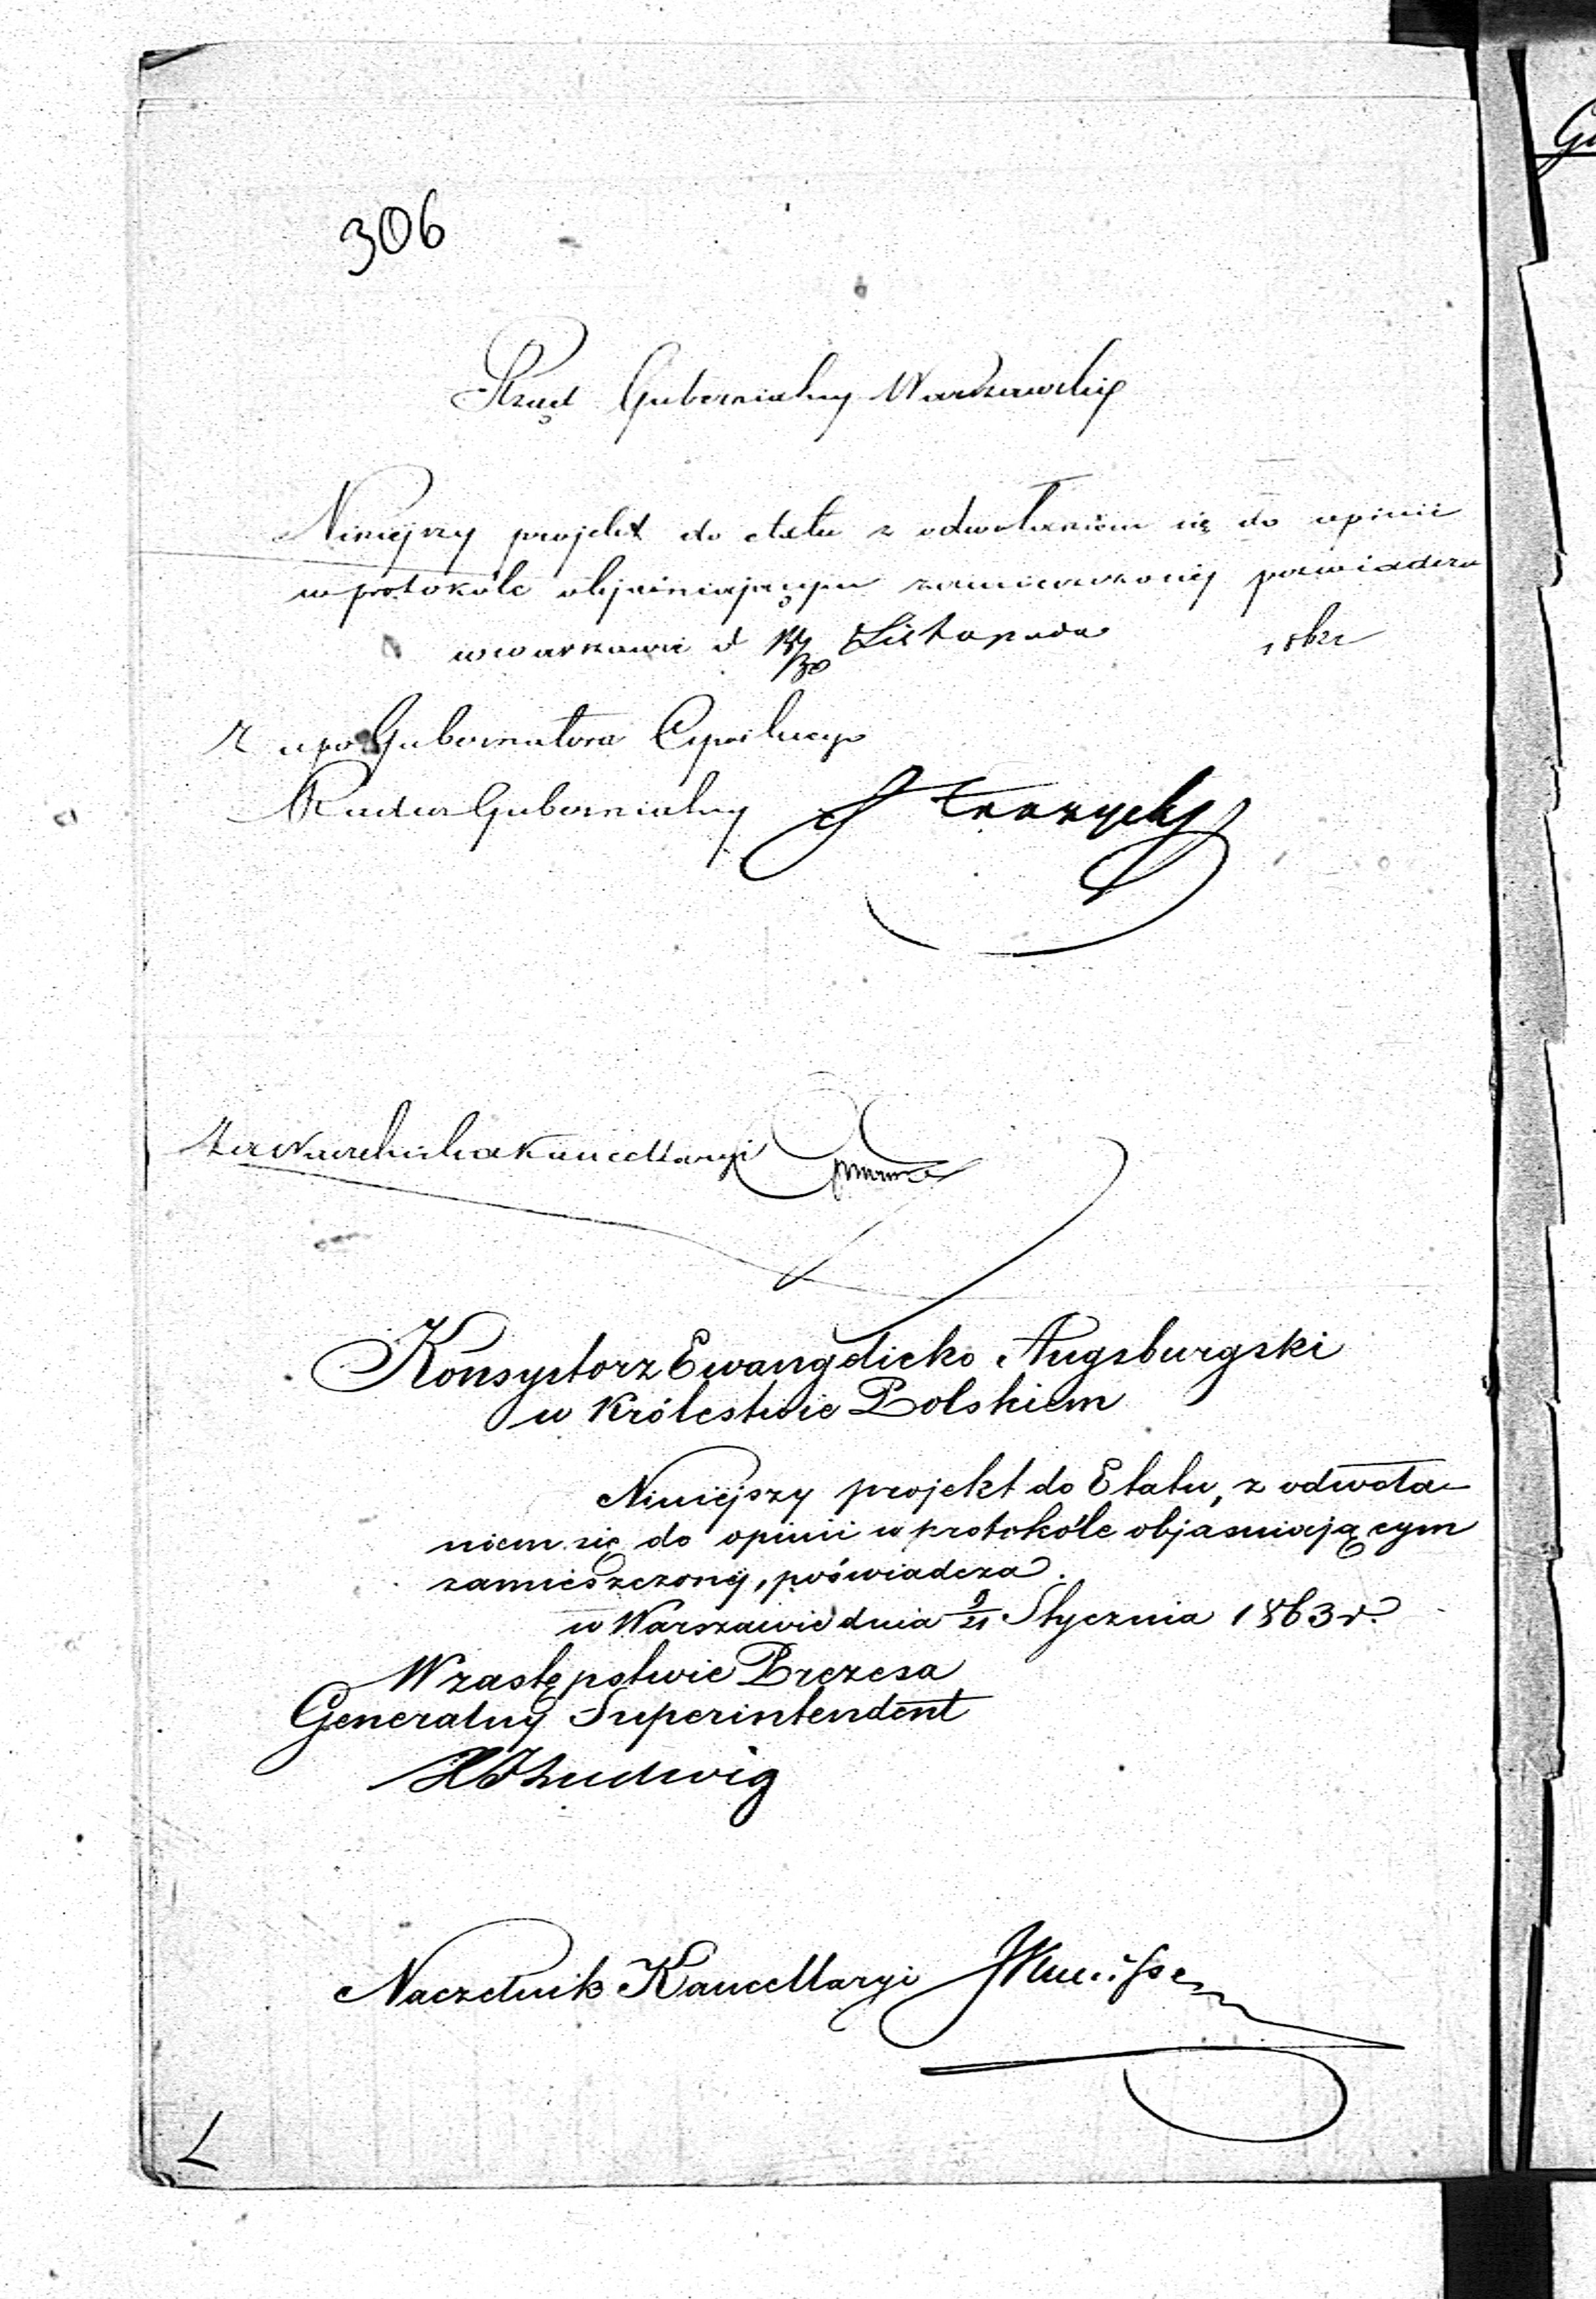 306
Rząd Gubernialny Warszawski
Niniejszy projekt do etatu z odwołaniem się do opinii
w protokóle objaśniającym zamieszczonej poświadcza
w Warszawie d 18/30 Listopada 1862 r
Z upo Gubernatora Cywilnego
Radca Gubernialny
za Naczelnika Kancellaryi
Konsystorz Ewangelicko Augsburgski
w Królestwie Polskiem
Niniejszy projekt do Etatu, z odwoła-
niem się do opinii w protokóle objasniającym
zamieszczonej, poświadcza.
w Warszawie dnia 9/21 Stycznia 1863 r.
W zastępstwie Prezesa
Generalny Superintendent
Ludwig
Naczelnik Kancellaryi